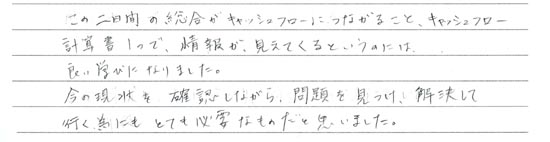 この二日間の総合がキャッシュフローにつながること、キャッシュフロー
計算書1つで、情報が、見えてくるというのには、
良い学びになりました。
今の現状を確認しながら、問題を見つけ、解決して
行く為にもとても必要なものだと思いました。